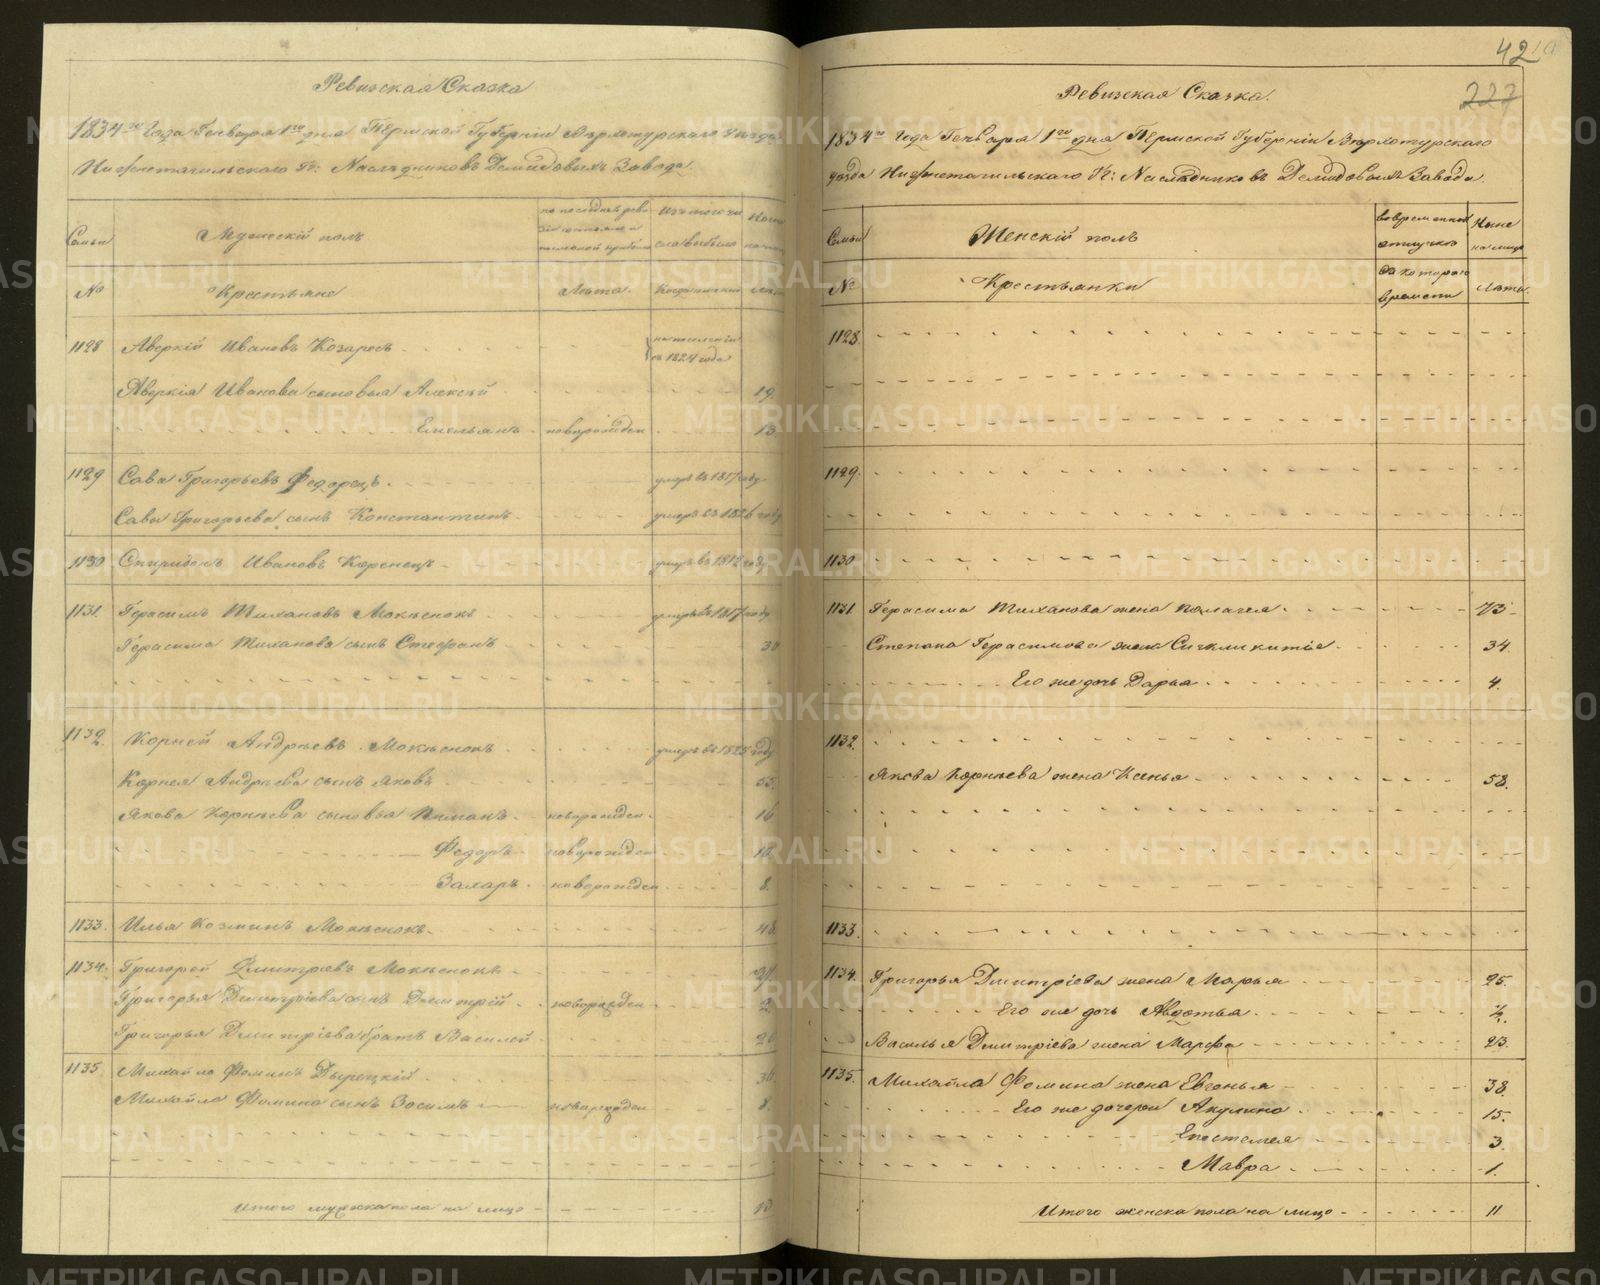 Ревизская Сказка
1834го Года Генваря 1го дня Пермской Губернiи Верхотурского уезда
Нижнетагильского Гг: Наследниковъ Демидовыхъ Завода.
Семьи
Мужескiй полъ
Изъ того чи
сла выбыло
№
Крестьяне
Лета.
1128 Аверкiй Ивановъ Козарезъ
на поселенiи
въ 1824 года
Аверкiя Иванова сыновья Алексей 19.
Емельянъ новорожден 13.
1129 Сава Григорьевъ умеръ въ 1817 году
Савы Григорьева сынъ Константинъ умеръ въ 1826 году
1130 Спиридонъ Ивановъ умеръ въ 1812 году
1131. Герасимъ Тихановъ Мокѣенокъ умеръ въ 1817 году
Герасима Тиханова сынъ Стефанъ
1132. Корней Андреевъ Мокѣенокъ умеръ въ 1825 году
Корнея Андреева сынъ Яковъ 55.
Якова Корнеева сыновья Пиманъ новорожден 16
Федоръ новорожден
Захаръ новорожден 8.
1133. Илья Козминъ Мокѣенокъ 48.
1134. Григорей Дмитревъ Мокѣенокъ
Григорья Дмитрiева сынъ Дмитрiй новорожден 2.
Григорья Дмитрiева братъ Василей
1135. Михайло Фоминъ Дырецкiй
Михайла Фомина сынъ Зосимъ новорожден 8.
Итого мужска пола на лицо
42
227
Ревизская Сказка.
1834го Года Генваря 1го дня Пермской Губернiи Верхотурского
уезда Нижнетагильского Гг: Наследниковъ Демидовыхъ Завода.
Семьи
Женскiй полъ
во временной
отлучке
Ныне
на лицо
№
Крестьянки
съ котораго
времени
Лета.
1128.
1129.
1130
1131. Герасима Тиханова жена Палагея 73
Степана Герасимова жена Сигкликитiя 34.
Его же дочь Дарья 4.
1132.
Якова Корнеева жена Ксенья 58.
1133.
1134. Григорья Дмитрiева жена Марья 25.
Его же дочь Авдотья ½.
Василья Дмитрiева жена Марфа 23.
1135. Михайла Фомина жена Евгенья 38.
Его же дочери Акулина 15.
Епестемея 3.
Мавра 1.
Итого женска пола на лицо 11
METRIKI.GASO-URAL.RU